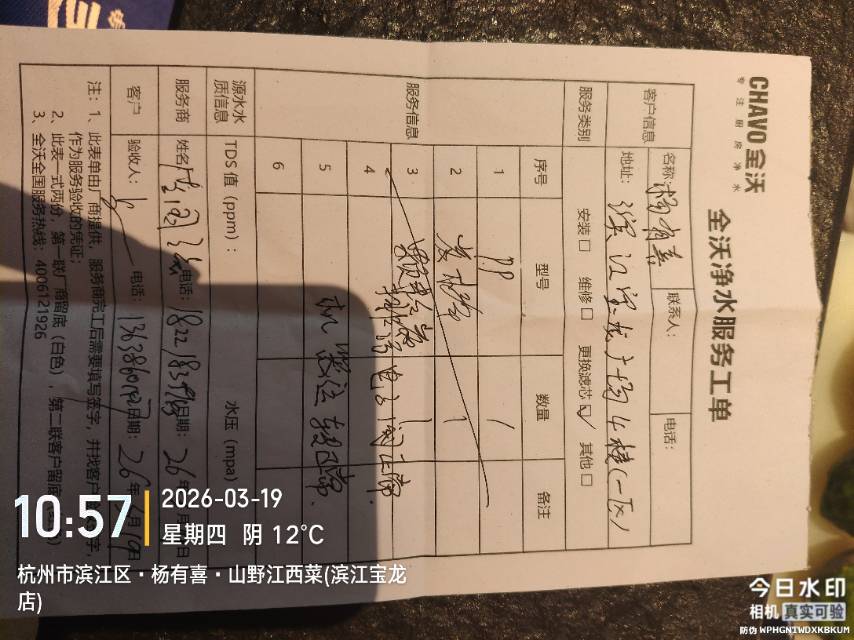 CHAVO全沃
专注厨房净水
全沃净水服务工单
客户信息 名称: 杨有喜 联系人: 电话:
地址: 滨江宝龙广场4楼(一区)
服务类别 安装□ 维修□ 更换滤芯☑ 其他□
服务信息 序号 型号 数量 备注
1 PP 1
2 1
3
4
5 机器运转正常.
6
源水水质信息 TDS值(ppm): 水压(mpa)
服务商 姓名: 电话: 日期: 26年 月 日
客户 验收人: 电话: 日期: 26年 月19日
注: 1、此表单由厂商提供, 服务商完工后需要填写签字, 并找客户 字,
作为服务验收的凭证;
2、此表一式两份, 第一联厂商留底(白色), 第二联客户留底
3、全沃全国服务热线: 4006121926
10:57
2026-03-19
星期四 阴 12°C
杭州市滨江区·杨有喜·山野江西菜(滨江宝龙
店)
今日水印
相机 真实可验
防伪 WPHGNTWDXKBKUM